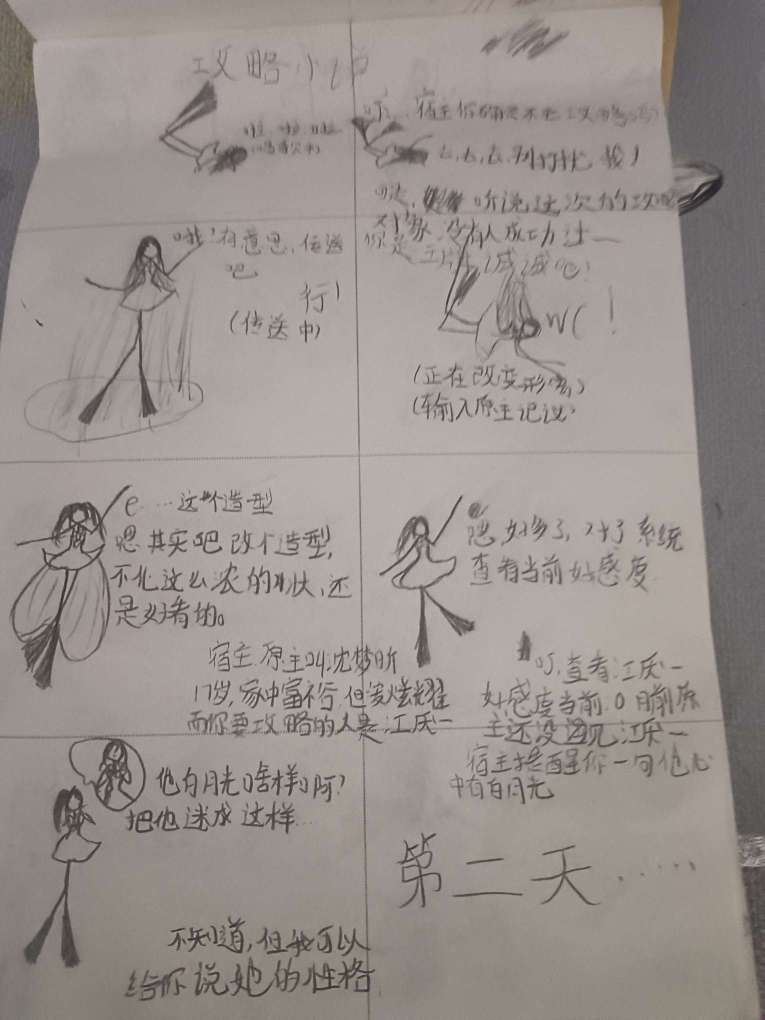 攻略小说
啦 啦 啦
叮…宿主你确定不去攻略吗?
去,去,去,别打扰我!
听说这次的攻略
对象,没有人成功过
你是
哦!有意思,传送
吧
行!
(传送中)
(正在改变形象)
(输入原主记忆)
e……这个造型
嗯其实吧改个造型,
不化这么浓的妆,还
是好看的。
宿主,原主叫:沈梦昕
17岁,家中富裕,但爱炫耀
而你要攻略的人是:江厌一
嗯好多了,对了系统
查看当前好感度
叮,查看江厌一
好感度当前:0 目前原
主还没遇见江厌一
宿主提醒你一句他心
中有白月光
他白月光啥样啊?
把他迷成这样…
不知道,但我可以
给你说她的性格
第二天……